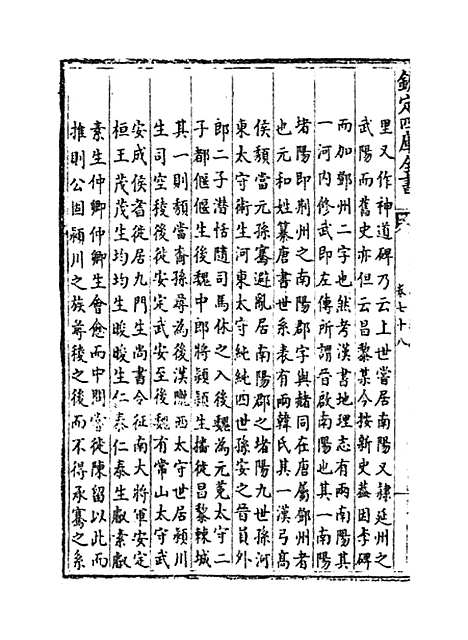 欽定四庫全書
卷七十八
里又作神道碑乃云上世嘗居南陽又隷延州之
武陽而舊史亦但云昌黎某今按新史蓋因李碑
而加鄧州二字也然考漢書地理志有兩南陽其
一河内修武即左傳所謂晉啟南陽也其一南陽
堵陽即荆州之南陽郡字與赭同在唐屬鄧州者
也元和姓纂唐書世系表有兩韓氏其一漢弓髙
侯頽當𤣥孫騫避亂居南陽郡之堵陽九世孫河
東太守術生河東太守純純四世孫安之晉員外
郎二子潛恬隨司馬休之入後魏為𤣥菟太守二
子都偃偃生後魏中郎將頴頴生播徙昌黎棘城
其一則頽當裔孫尋為後漢隴西太守世居潁川
生司空稜後徙安定武安至後魏有常山太守武
安成侯耆徙居九門生尚書令征南大將軍安定
桓王茂茂生均均生晙晙生仁泰仁泰生叡素叡
素生仲卿仲卿生會愈而中間嘗徙陳留以此而
推則公固潁川之族尋後之後而不得承騫之系